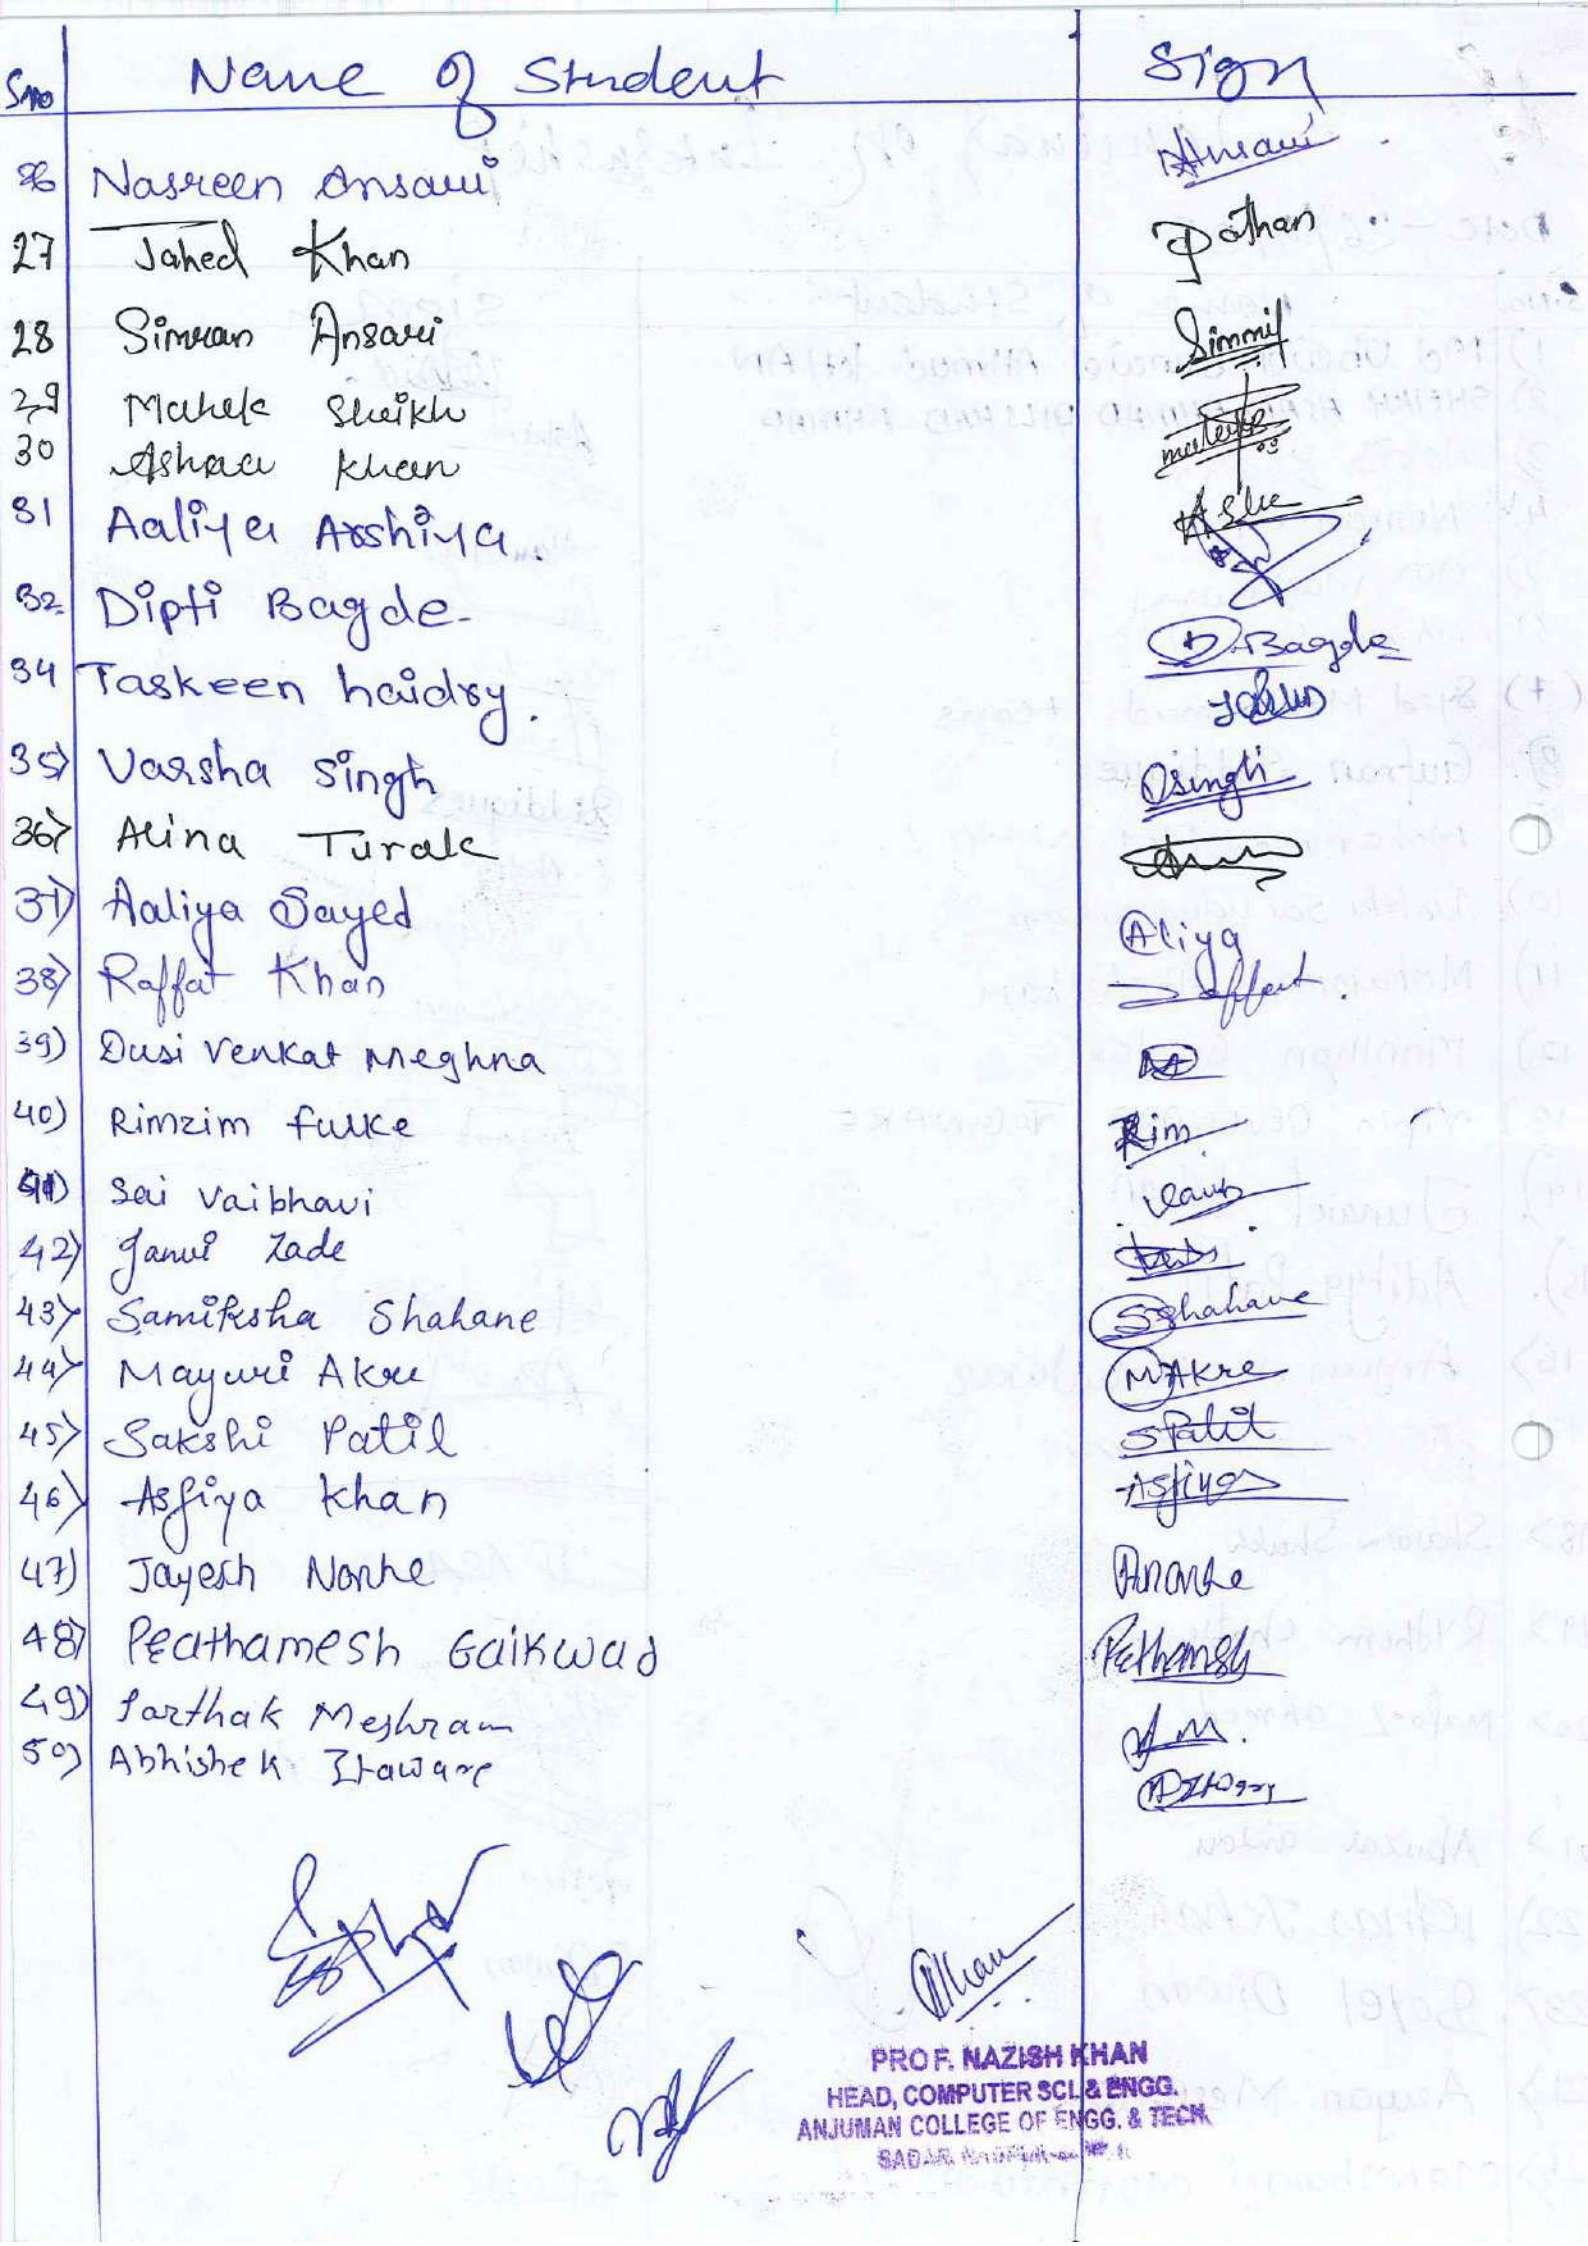 Sno Name of Student Sign
26 Nasreen Ansari Ansari
27 Jahed Khan Pathan
28 Simran Ansari Simmi
29 Mahek Sheikh
30 Ashraa Khan
31 Aaliya Arshiya.
32. Dipti Bagde- D.Bagde
34 Taskeen haidry.
35) Varsha Singh Singh
36) Alina Turak
37) Aaliya Sayed Aliya
38) Raffat Khan Raffat.
39) Dusi Venkat Meghna
40) Rimzim fulke Rim
41) Sai Vaibhavi
42) Janvi Zade
43) Samiksha Shahane SShahane
44) Mayuri Akre MAkre
45) Sakshi Patil SPatil
46) Asfiya Khan Asfiya
47) Jayesh Norhe
48) Prathamesh Gaikwad
49) Sarthak Meshram S.M.
50) Abhishek Itaware
Khan
PROF. NAZISH KHAN
HEAD, COMPUTER SCI. & ENGG.
ANJUMAN COLLEGE OF ENGG. & TECH.
SADAR,